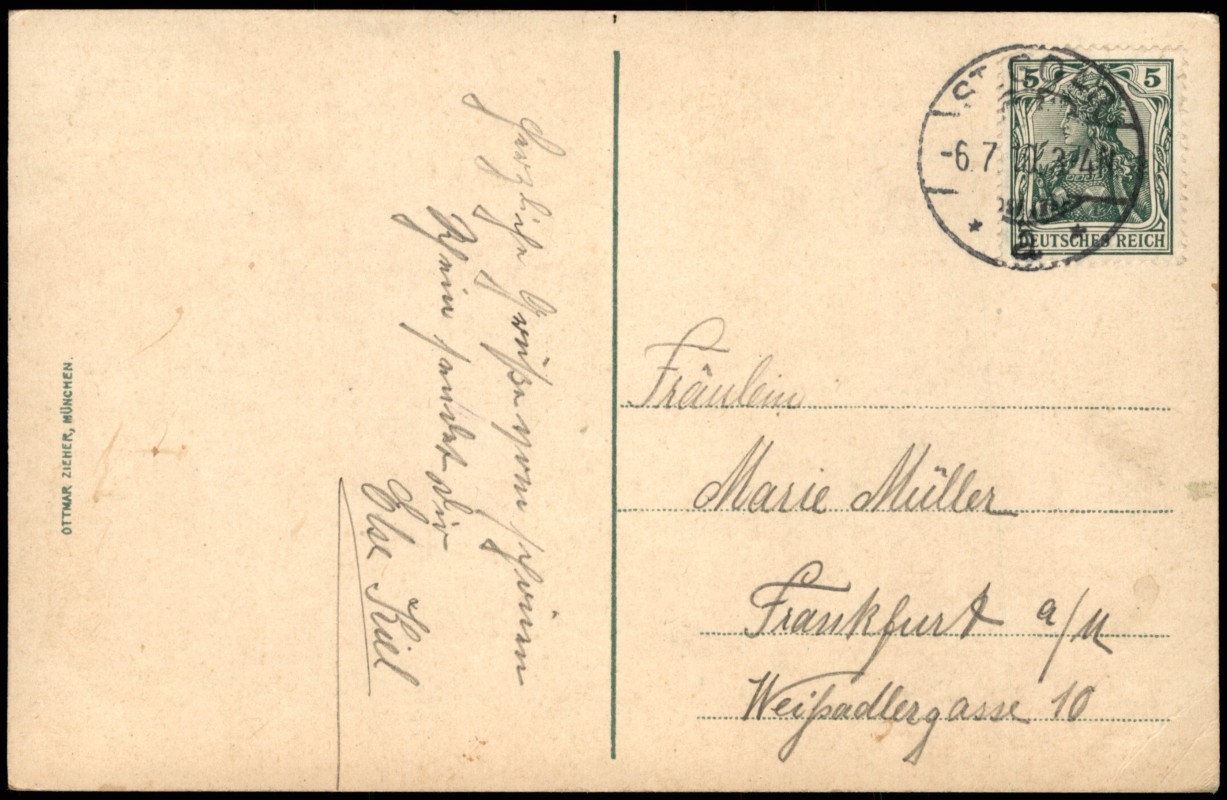 Herzliche Grüße vom schönen
Rhein sendet dir
Else Kiel
OTTMAR ZIEHER, MÜNCHEN.
5 5
DEUTSCHES REICH
ST. GOAR
-6.7. 3-4N.
* a *
Fräulein
Marie Müller
Frankfurt a/M
Weißadlergasse 10